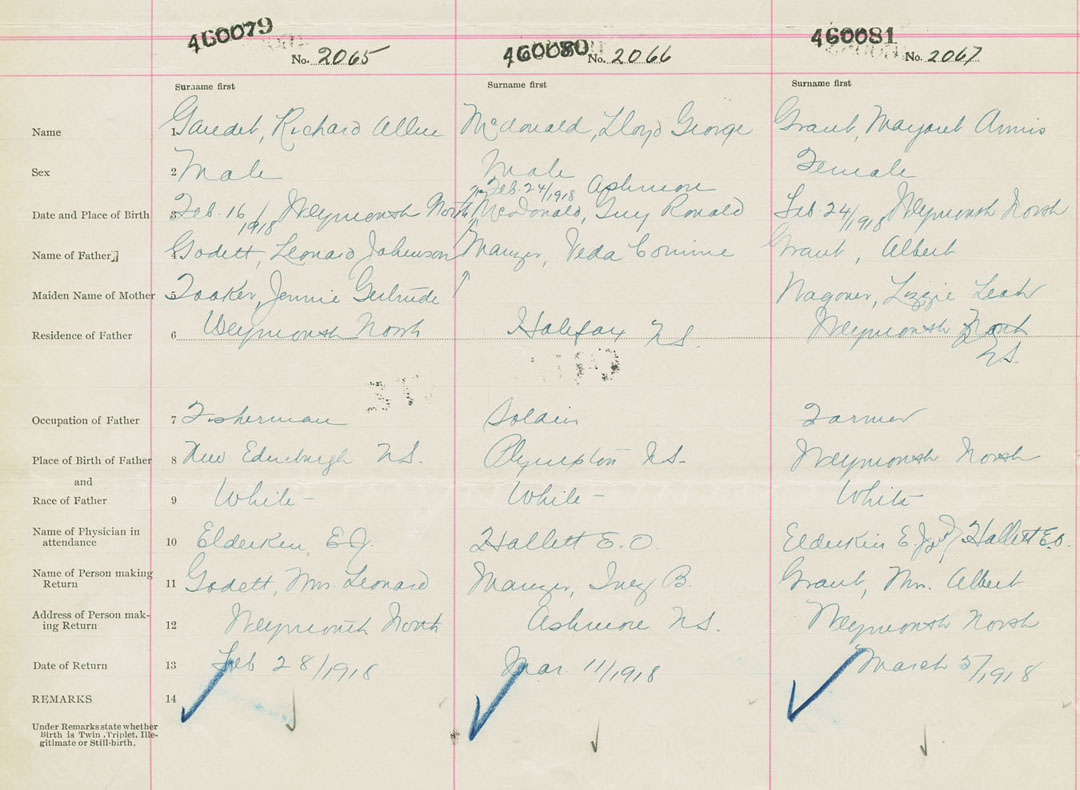 460079 460080 460081
No. 2065 No. 2066 No. 2067
Surname first Surname first Surname first
Name 1 Gaudet, Richard Allen McDonald, Lloyd George Grant, Margaret Annis
Sex 2 Male Male Female
Feb. 24/1918 Ashmore
Date and Place of Birth 3 Feb. 16/1918 Weymouth North McDonald, Guy Ronald Feb 24/1918 Weymouth North
Name of Father 4 Godett, Leonard Johnson Manzer, Veda Corinne Grant, Albert
Maiden Name of Mother 5 Tooker, Jennie Gertrude Wagoner, Lizzie Leah
Residence of Father 6 Weymouth North Halifax N.S. Weymouth North
N.S.
Occupation of Father 7 Fisherman Soldier Farmer
Place of Birth of Father 8 New Edinburgh N.S. Plympton N.S. Weymouth North
and
Race of Father 9 White White White
Name of Physician in
attendance 10 Elderkin, E.J. Hallett E.O. Elderkin E.J. Hallett E.O.
Name of Person making
Return 11 Godett, Mrs. Leonard Manzer, Inez B. Grant, Mrs. Albert
Address of Person mak-
ing Return 12 Weymouth North Ashmore N.S. Weymouth North
Date of Return 13 Feb 28/1918 Mar. 11/1918 March 5/1918
REMARKS 14
Under Remarks state whether
Birth is Twin, Triplet, Ille-
gitimate or Still-birth.